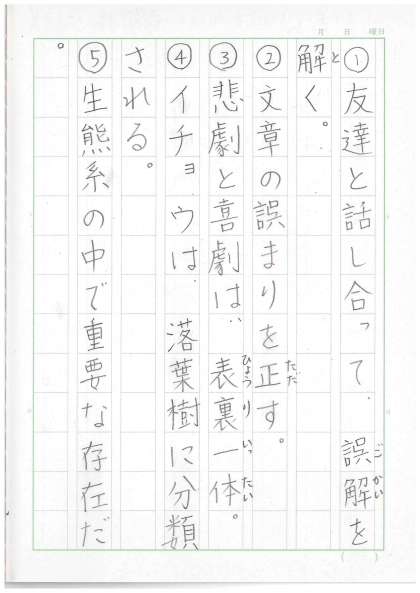 月　日　曜日
①友達と話し合って、誤解を
解く。
②文章の誤まりを正す。
③悲劇と喜劇は、表裏一体。
④イチョウは、落葉樹に分類
される。
⑤生熊系の中で重要な存在だ
。
ごかい
と
ただ
ひょうりいったい